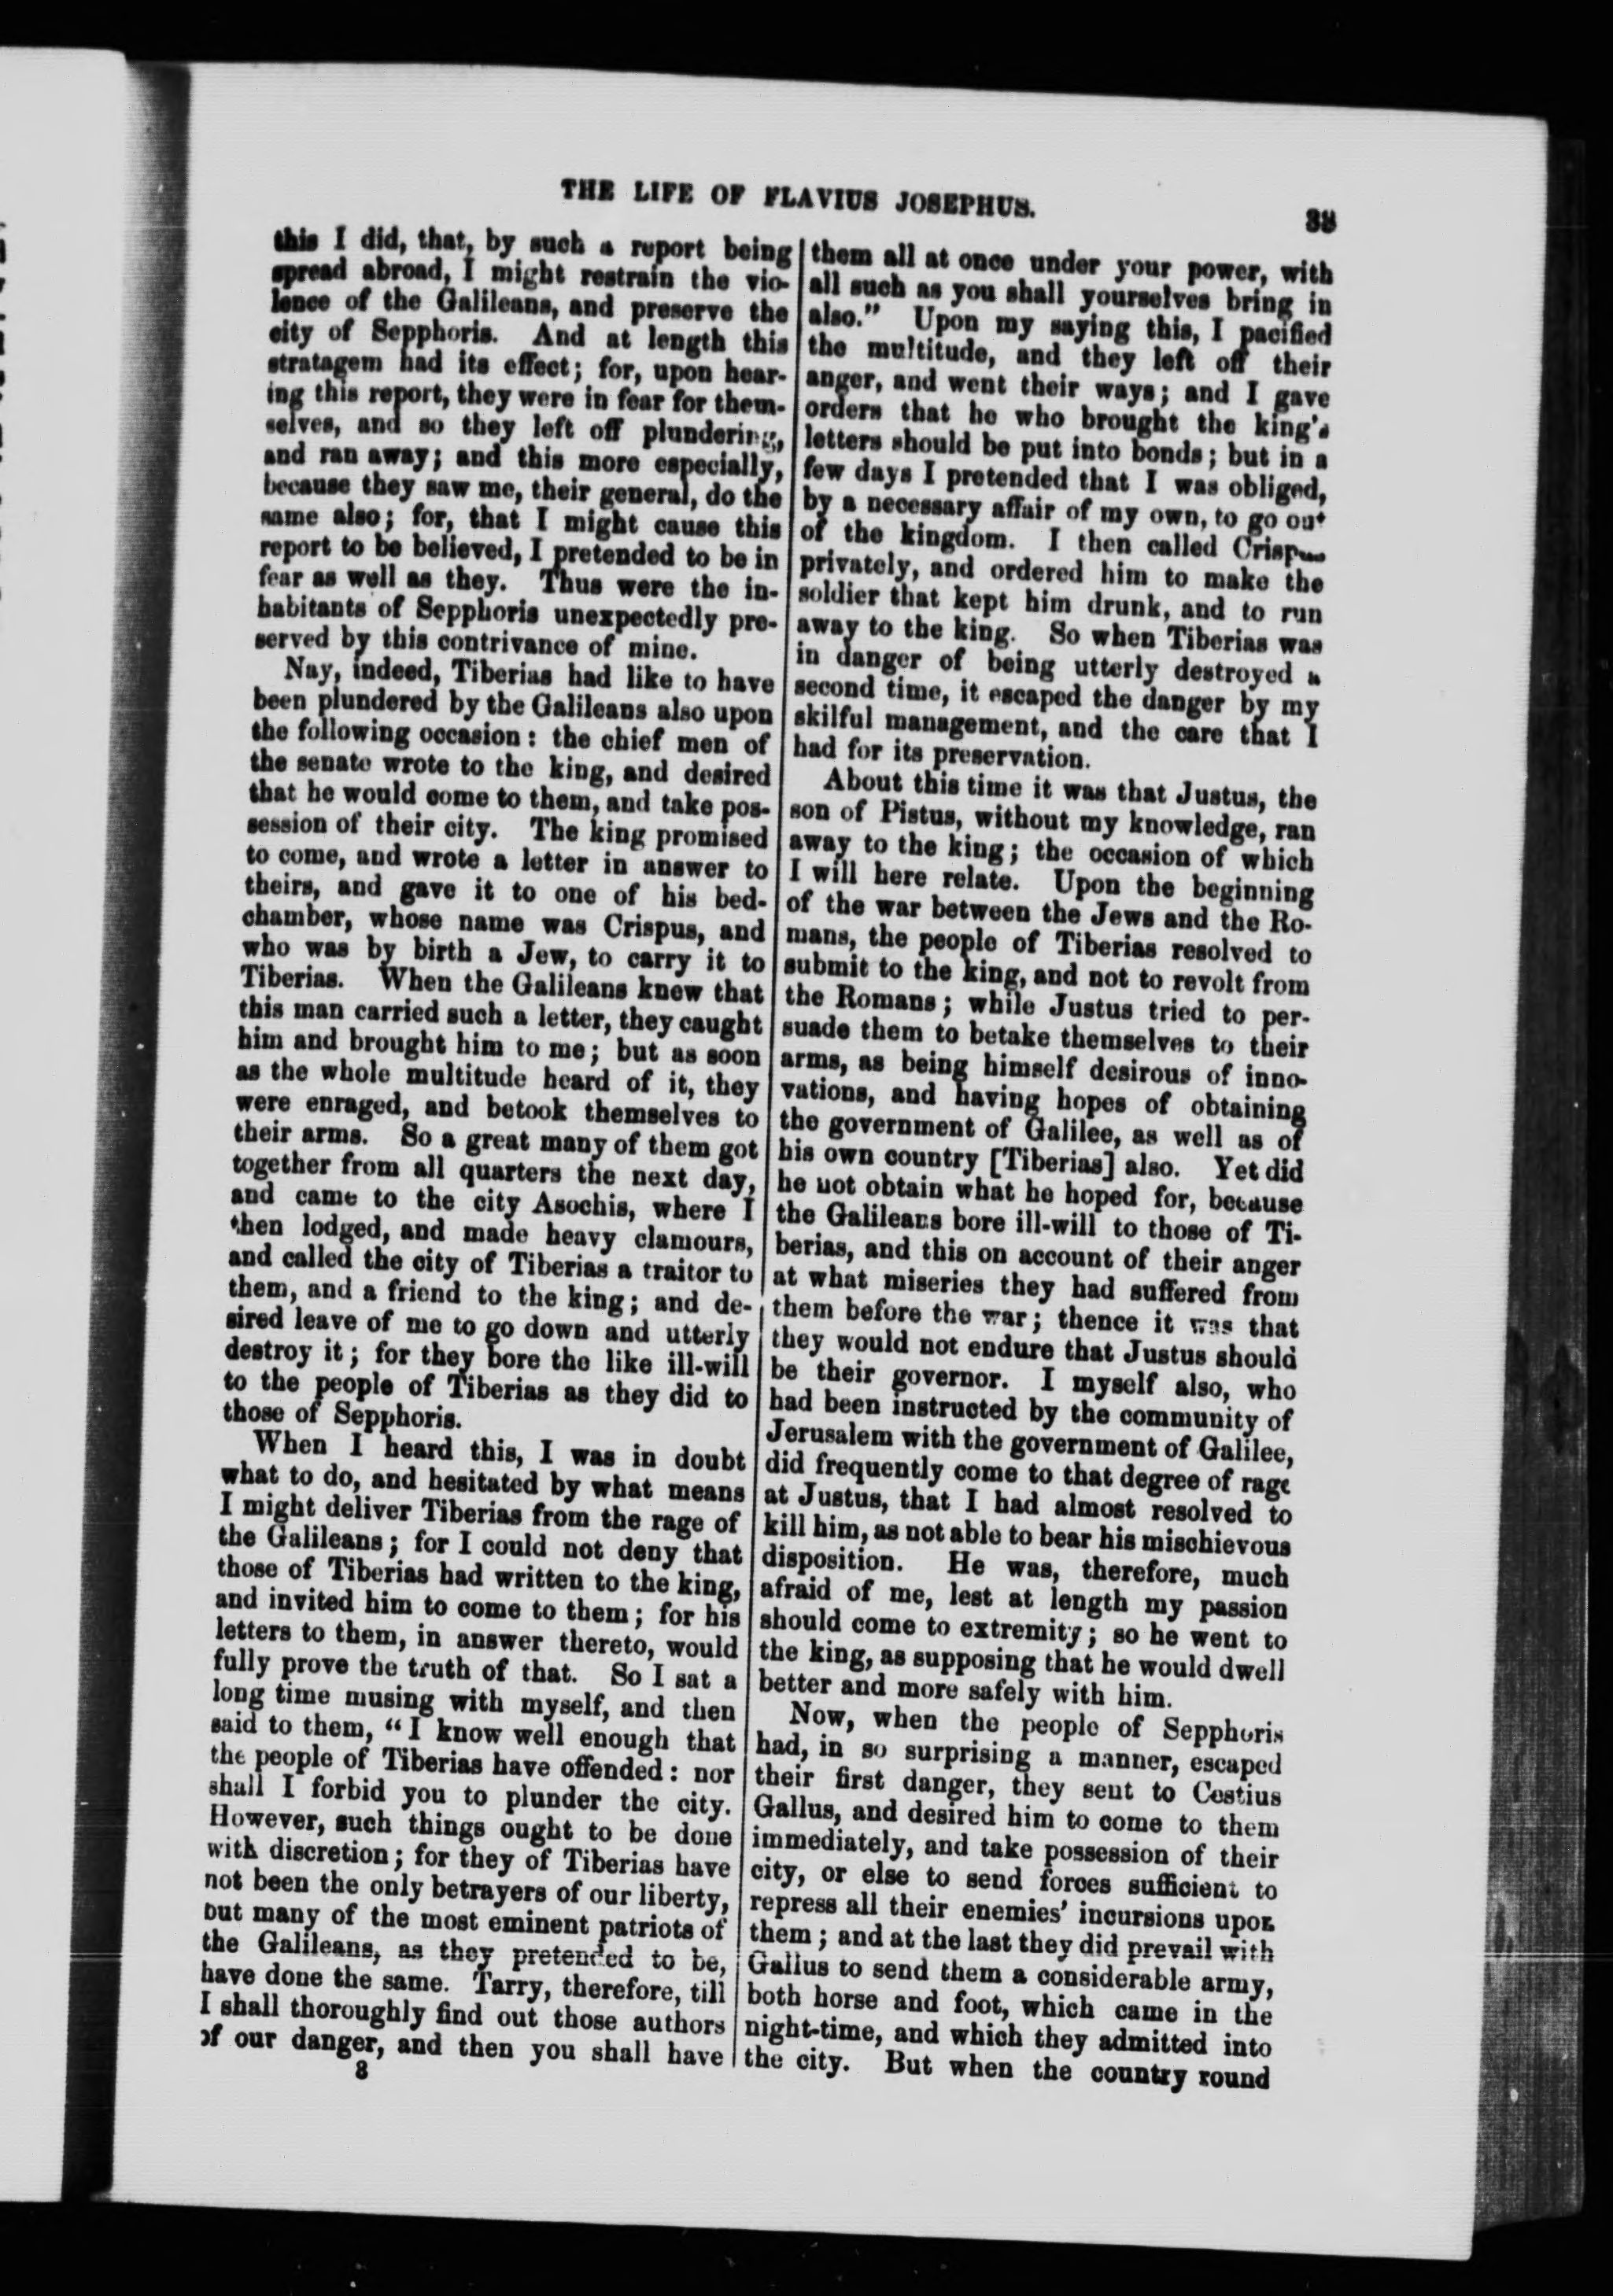 THE LIFE OF FLAVIUS JOSEPHUS.
this I did, that, by such a report being
spread abroad, I might restrain the vio-
lence of the Galileans, and preserve the
city of Sepphoris. And at length this
stratagem had its effect; for, upon hear-
ing this report, they were in fear for them-
selves, and so they left off plundering,
and ran away; and this more especially,
because they saw me, their general, do the
same also; for, that I might cause this
report to be believed, I pretended to be in
fear as well as they. Thus were the in-
habitants of Sepphoris unexpectedly pre-
served by this contrivance of mine.
Nay, indeed, Tiberias had like to have
been plundered by the Galileans also upon
the following occasion: the chief men of
the senate wrote to the king, and desired
that he would come to them, and take pos-
session of their city. The king promised
to come, and wrote a letter in answer to
theirs, and gave it to one of his bed-
chamber, whose name was Crispus, and
who was by birth a Jew, to carry it to
Tiberias. When the Galileans knew that
this man carried such a letter, they caught
him and brought him to me; but as soon
as the whole multitude heard of it, they
were enraged, and betook themselves to
their arms. So a great many of them got
together from all quarters the next day,
and came to the city Asochis, where I
then lodged, and made heavy clamours,
and called the city of Tiberias a traitor to
them, and a friend to the king; and de-
sired leave of me to go down and utterly
destroy it; for they bore the like ill-will
to the people of Tiberias as they did to
those of Sepphoris.
When I heard this, I was in doubt
what to do, and hesitated by what means
I might deliver Tiberias from the rage of
the Galileans; for I could not deny that
those of Tiberias had written to the king,
and invited him to come to them; for his
letters to them, in answer thereto, would
fully prove the truth of that. So I sat a
long time musing with myself, and then
said to them, "I know well enough that
the people of Tiberias have offended: nor
shall I forbid you to plunder the city.
However, such things ought to be done
with discretion; for they of Tiberias have
not been the only betrayers of our liberty,
but many of the most eminent patriots of
the Galileans, as they pretended to be,
have done the same. Tarry, therefore, till
I shall thoroughly find out those authors
of our danger, and then you shall have
3
them all at once under your power, with
all such as you shall yourselves bring in
also." Upon my saying this, I pacified
the multitude, and they left off their
anger, and went their ways; and I gave
orders that he who brought the king's
letters should be put into bonds; but in a
few days I pretended that I was obliged,
by a necessary affair of my own, to go out
of the kingdom. I then called Crispus
privately, and ordered him to make the
soldier that kept him drunk, and to run
away to the king. So when Tiberias was
in danger of being utterly destroyed a
second time, it escaped the danger by my
skilful management, and the care that I
had for its preservation.
About this time it was that Justus, the
son of Pistus, without my knowledge, ran
away to the king; the occasion of which
I will here relate. Upon the beginning
of the war between the Jews and the Ro-
mans, the people of Tiberias resolved to
submit to the king, and not to revolt from
the Romans; while Justus tried to per-
suade them to betake themselves to their
arms, as being himself desirous of inno-
vations, and having hopes of obtaining
the government of Galilee, as well as of
his own country [Tiberias] also. Yet did
he not obtain what he hoped for, because
the Galileans bore ill-will to those of Ti-
berias, and this on account of their anger
at what miseries they had suffered from
them before the war; thence it was that
they would not endure that Justus should
be their governor. I myself also, who
had been instructed by the community of
Jerusalem with the government of Galilee,
did frequently come to that degree of rage
at Justus, that I had almost resolved to
kill him, as not able to bear his mischievous
disposition. He was, therefore, much
afraid of me, lest at length my passion
should come to extremity; so he went to
the king, as supposing that he would dwell
better and more safely with him.
Now, when the people of Sepphoris
had, in so surprising a manner, escaped
their first danger, they sent to Cestius
Gallus, and desired him to come to them
immediately, and take possession of their
city, or else to send forces sufficient to
repress all their enemies' incursions upon
them; and at the last they did prevail with
Gallus to send them a considerable army,
both horse and foot, which came in the
night-time, and which they admitted into
the city. But when the country round